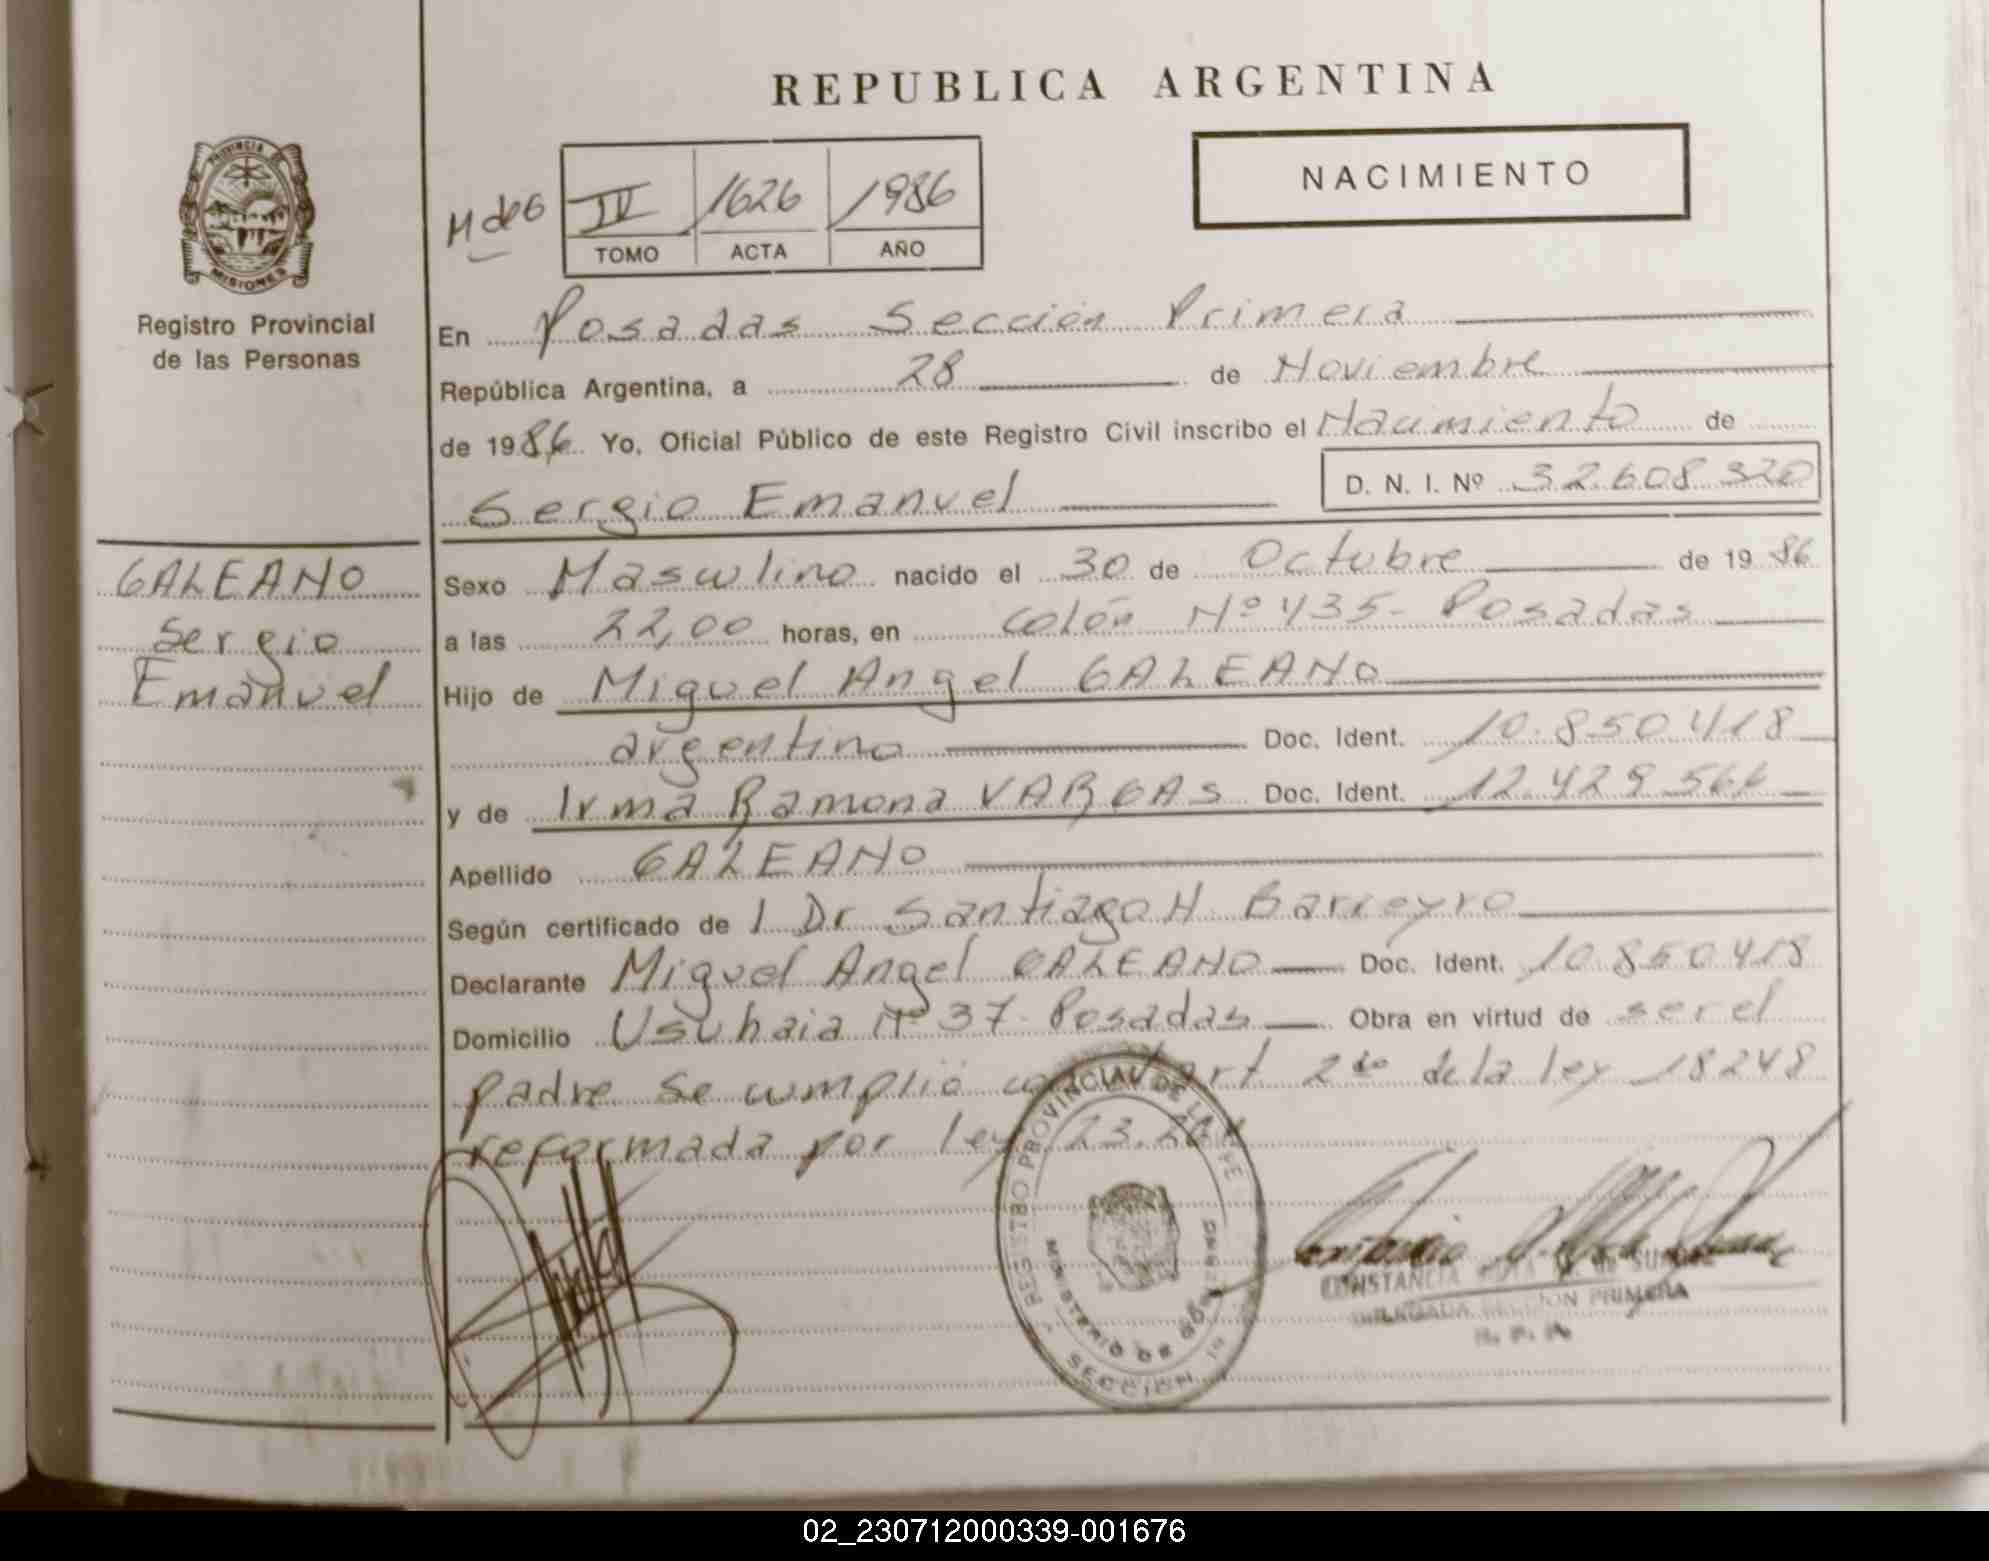 REPUBLICA ARGENTINA
NACIMIENTO
PROVINCIA DE
MISIONES
Registro Provincial
de las Personas
IV 1626 1986
TOMO ACTA AÑO
En Posadas Sección Primera
República Argentina, a 28 de Noviembre
de 1986 Yo, Oficial Público de este Registro Civil inscribo el Nacimiento de
Sergio Emanuel D. N. I. Nº 32.608.320
GALEANO
Sergio
Emanuel
Sexo Masculino nacido el 30 de Octubre de 1986
a las 22,00 horas, en Colón Nº 435- Posadas
Hijo de Miguel Angel GALEANO
argentino Doc. Ident. 10.850.418
y de Irma Ramona VARGAS Doc. Ident. 12.429.566
Apellido GALEANO
Según certificado de l Dr Santiago H. Barreyro
Declarante Miguel Angel GALEANO Doc. Ident. 10.850.418
Domicilio Usuhaia Nº 37- Posadas Obra en virtud de ser el
padre se cumplió art 2do de la ley 18248
reformada por ley 23.
REGISTRO PROVINCIAL DE LAS PE
MINISTERIO DE GOBIERNO
SECCION 1ª
CONSTANCIA
SECCION PRIMERA
R. P. P.
02_230712000339-001676